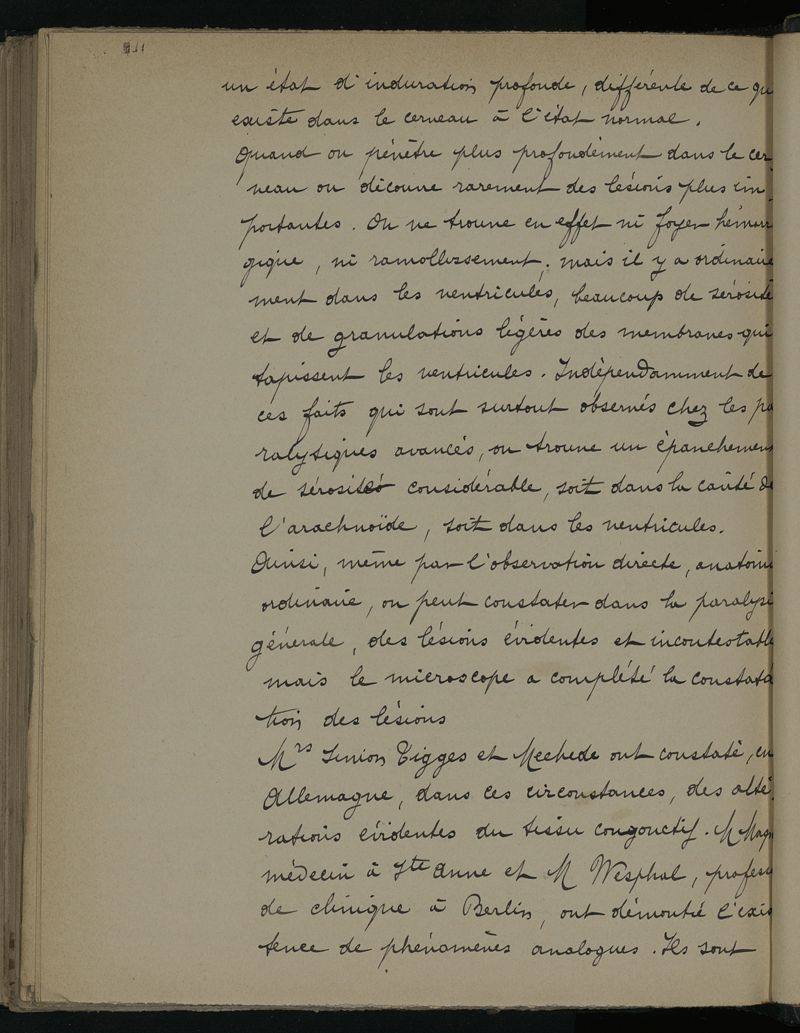 un état d'induration profonde, différente de ce qu
existe dans le cerveau à l'état normal.
Quand on pénètre plus profondément dans le cer
veau on découvre rarement des lésions plus im
portantes. On ne trouve en effet ni foyer hémorr
gique, ni ramollissement; mais il y a ordinaire
ment dans les ventricules, beaucoup de sérosité
et de granulations légères des membranes qui
tapissent les ventricules. Indépendamment de
ces faits qui sont surtout observés chez les pa
ralytiques avancés, on trouve un épanchement
de sérosité considérable, soit dans la cavité de
l'arachnoïde, soit dans les ventricules.
Ainsi, même par l'observation directe, anatomi
ordinaire, on peut constater dans la paralysi
générale, des lésions évidentes et incontestable
mais le microscope a complété la constata
tion des lésions
Mrs Tigges et Mechede ont constaté, en
Allemagne, dans ces circonstances, des alté
rations évidentes du tissu congonctif. M Mag
médecin à Ste Anne et M Wesphal, profess
de clinique à Berlin, ont démontré l'exis
tence de phénomènes analogues. Ils sont